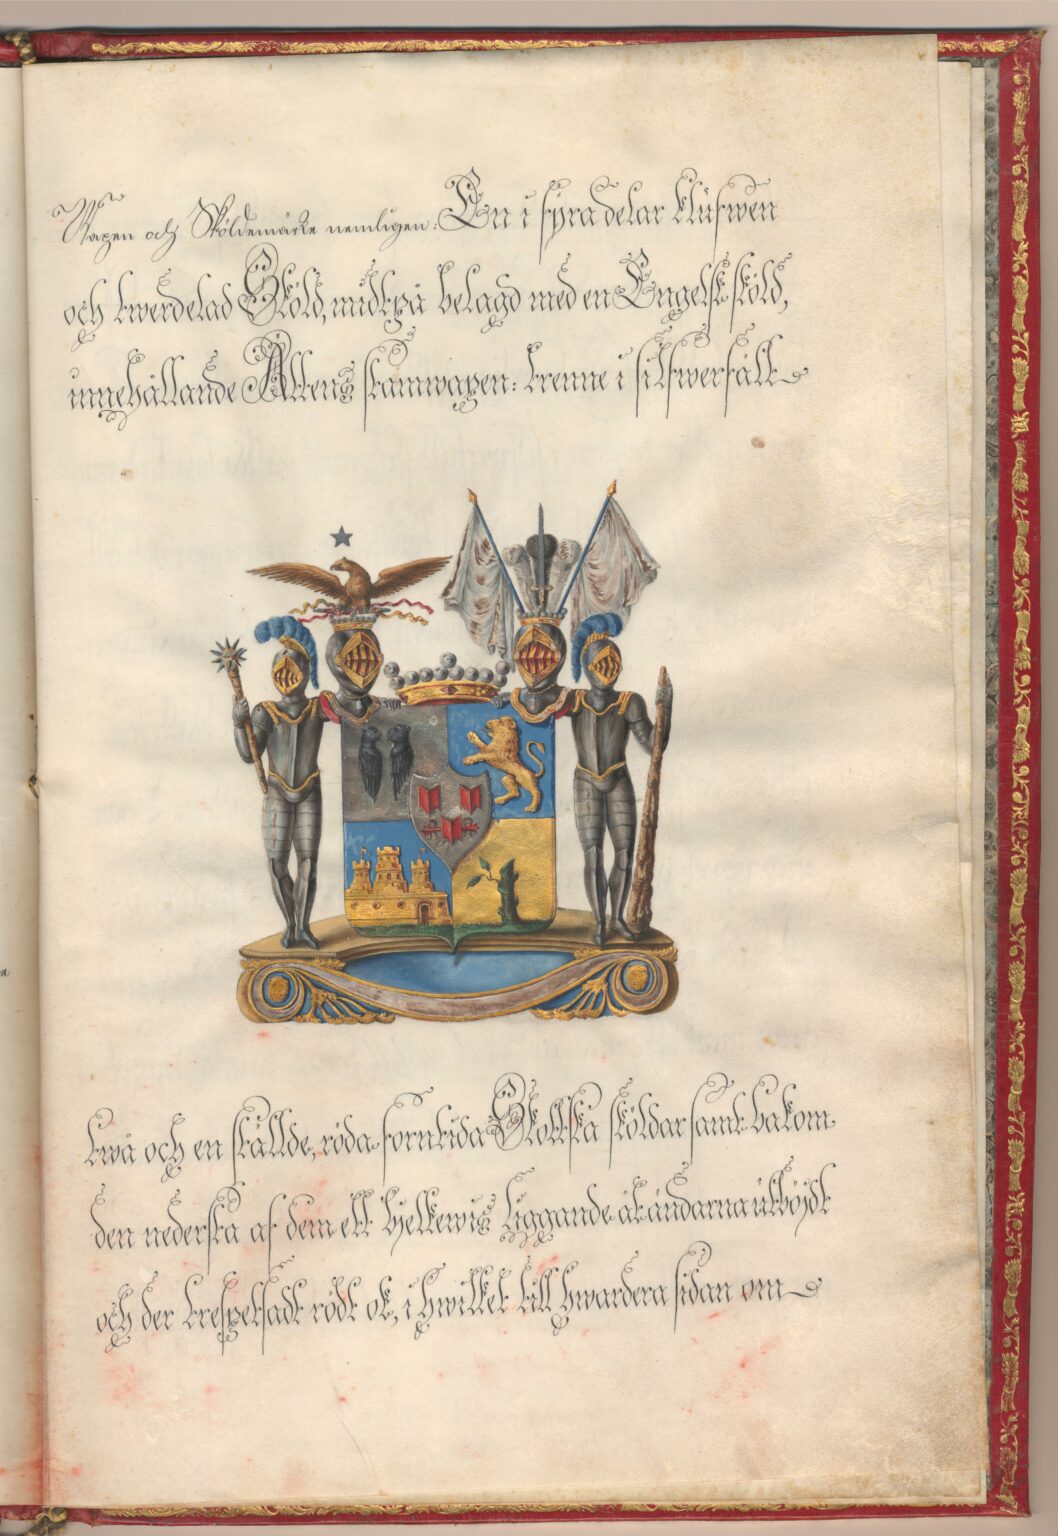 Wapen och Sköldemärke nemligen: En i fyra delar klufwen
och twerdelad Sköld, midtpå belagd med en Engelsk sköld,
innehållande Ättens stamwapen: trenne i silfwerfält
twå och en ställde, röda forntida Skottska sköldar samt bakom
den nedersta af dem ett bjelkewis liggande åt ändarna utböjdt
och der trespetsadt rödt ok, i hwilket till hwardera sidan om